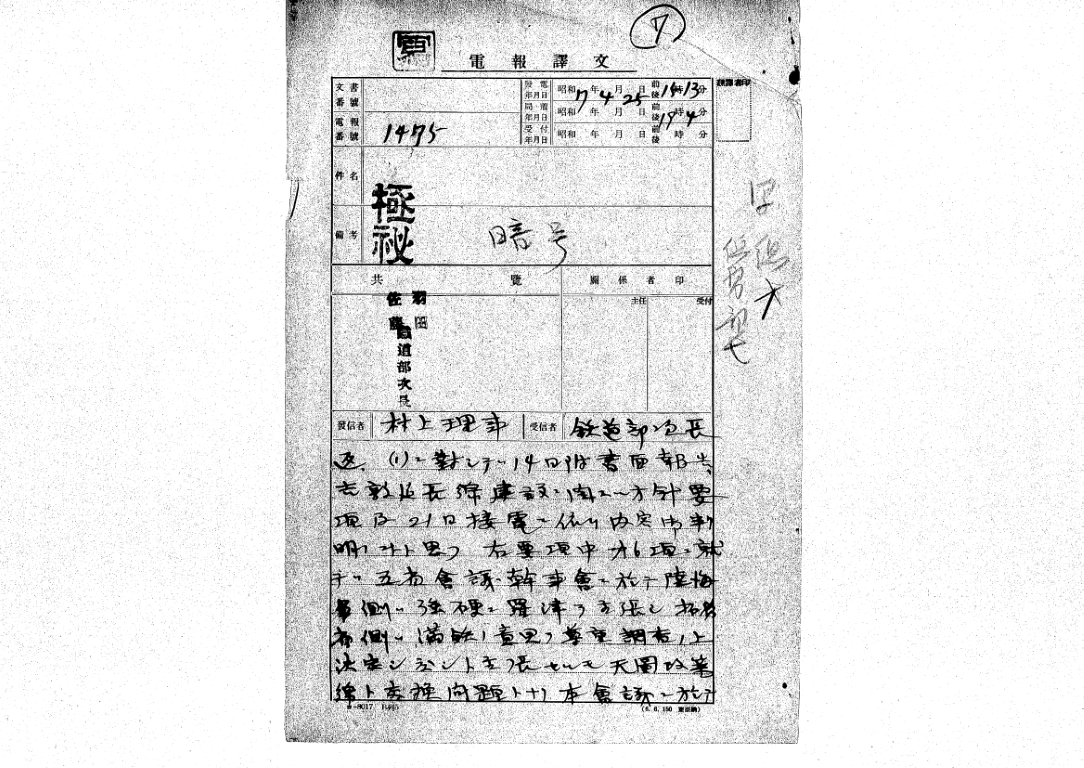 7
電報譯文
文書番號
電報番號 1475
發電年月日 昭和7年4月25日 前後 時13分
局着年月日 昭和 年 月 日 前後19時4分
受付年月日 昭和 年 月 日 前後 時 分
件名
極祕
備考 暗号
共覽
關係者印
主任
受付
羽田
佐藤
鐵道部次長
發信者 村上理事 受信者 鉄道部次長
返、(1)ニ對シテハ14日附書面報告
長線建設ニ関スル方針要
項及21日接電ニ依リ内定御判
明ノコトト思フ 右要項中第6項ニ就
テハ五省會議幹事會ニ於テ陸海
軍側ハ強硬ニ羅津ヲ主張シ拓務
省側ハ満鉄ノ意思ヲ尊重調査ノ上
決定シタシト主張セルモ天圖改築
線ト 問題トナリ本會議ニ於テ